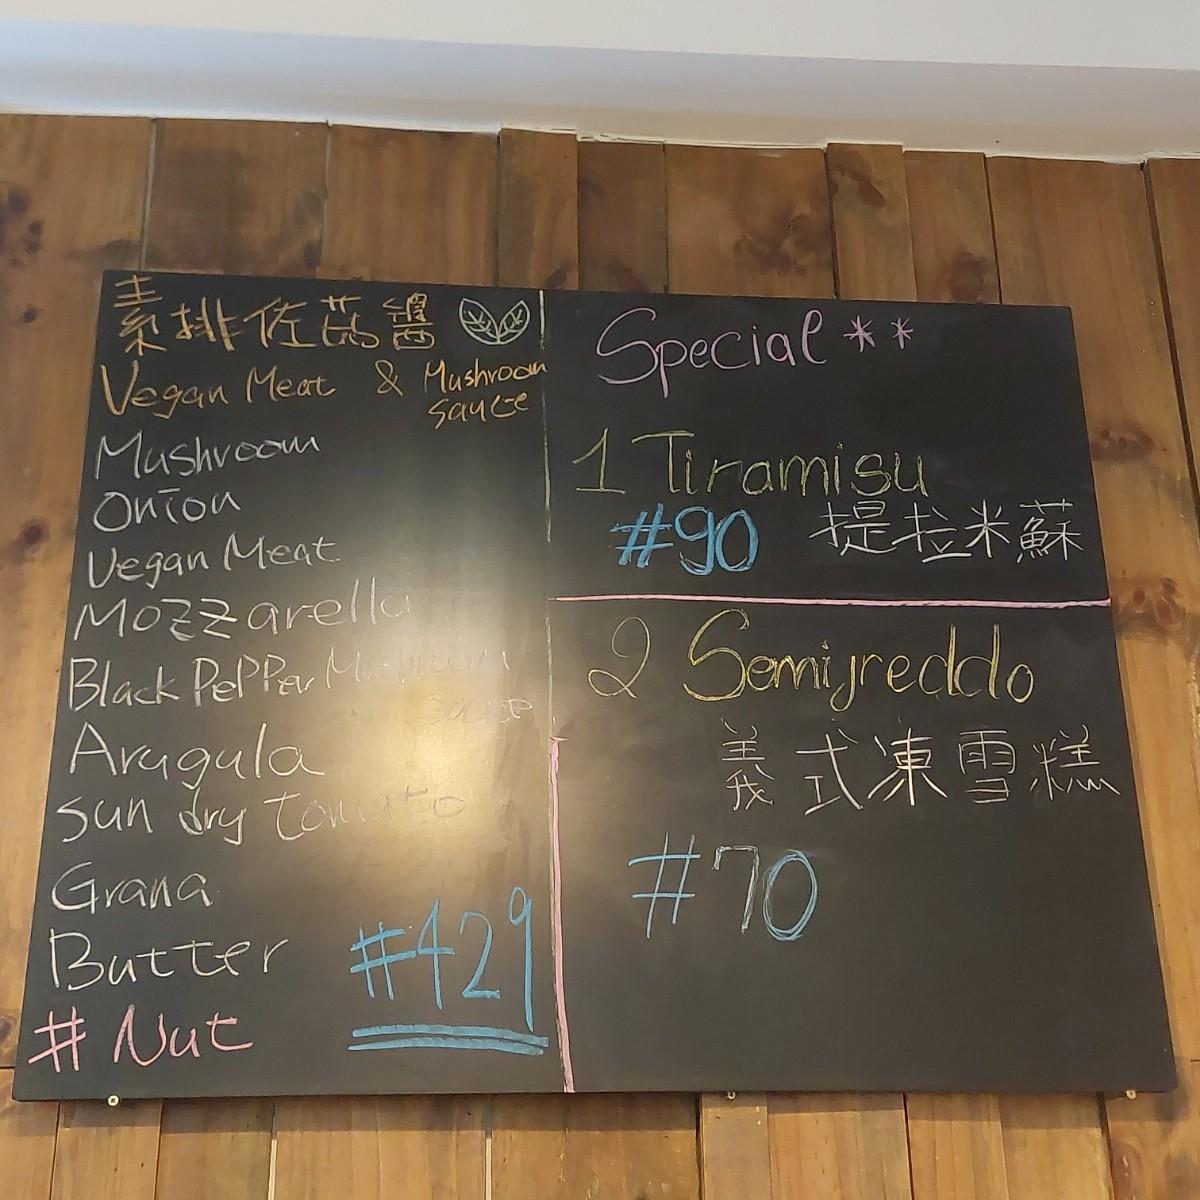 素排佐菇醬
Vegan Meat & Mushroom
sauce
Mushroom
Onion
Vegan Meat
Mozzarella
Black PePPer Mushroom
Sauce
Arugula
sun dry tomato
Grana
Butter
#429
# Nut
Special **
1 Tiramisu
#90 提拉米蘇
2 Semifreddo
義式凍雪糕
#70